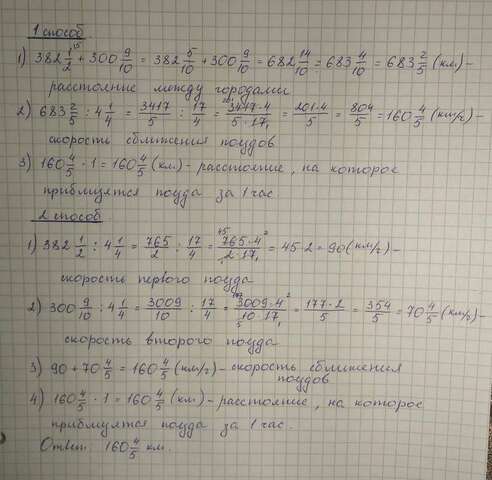 1 способ.
1) 382 1/2 + 300 9/10 = 382 5/10 + 300 9/10 = 682 14/10 = 683 4/10 = 683 2/5 (км) –
расстояние между городами
2) 683 2/5 : 4 1/4 = 3417/5 : 17/4 = 3417·4/5·17 = 201·4/5 = 804/5 = 160 4/5 (км/ч) –
скорость сближения поездов
3) 160 4/5 · 1 = 160 4/5 (км) – расстояние, на которое
приблизятся поезда за 1 час.
2 способ
1) 382 1/2 : 4 1/4 = 765/2 : 17/4 = 765·4/2·17 = 45·2 = 90 (км/ч) –
скорость первого поезда
2) 300 9/10 : 4 1/4 = 3009/10 : 17/4 = 3009·4/10·17 = 177·2/5 = 354/5 = 70 4/5 (км/ч) –
скорость второго поезда
3) 90 + 70 4/5 = 160 4/5 (км/ч) – скорость сближения
поездов
4) 160 4/5 · 1 = 160 4/5 (км) – расстояние, на которое
приблизятся поезда за 1 час.
Ответ: 160 4/5 км.